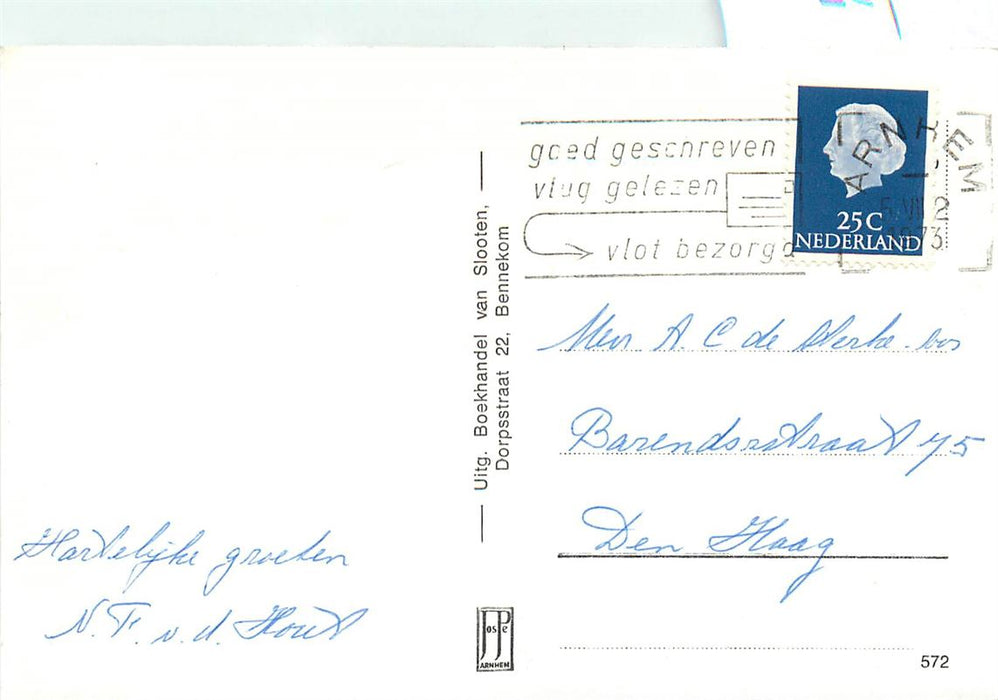 goed geschreven
vlug gelezen
vlot bezorgd
ARNHEM
1973
25C
NEDERLAND
Uitg. Boekhandel van Slooten,
Dorpsstraat 22, Bennekom
Mevr A. C de
Barendsestraat 75
Den Haag
Hartelijke groeten
N. F. v. d. Hout
JosPe
ARNHEM
572